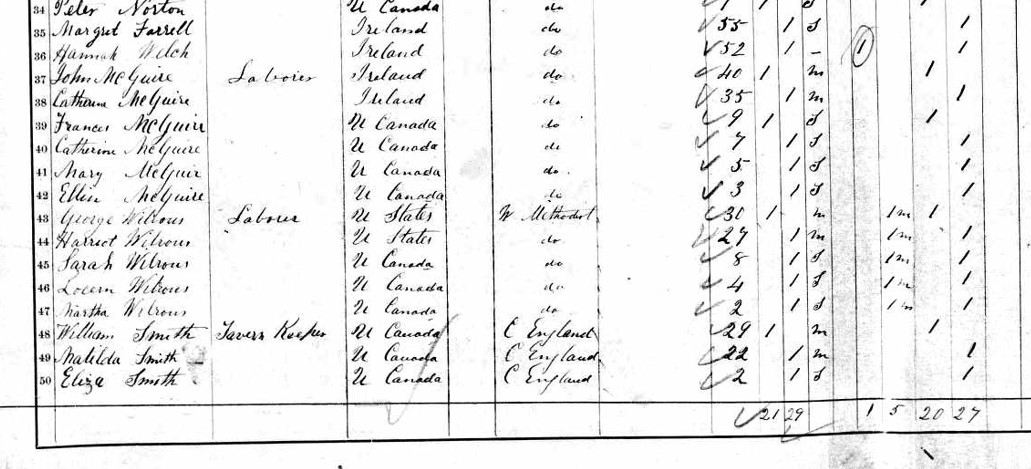 34 Peter Norton U Canada do 1 S 1
35 Margret Farrell Ireland do 55 1 S 1
36 Hannah Welch Ireland do 52 1 - 1 1
37 John McGuire Laborer Ireland do 40 1 m 1
38 Catherine McGuire Ireland do 35 1 m 1
39 Frances McGuire U Canada do 9 1 S 1
40 Catherine McGuire U Canada do 7 1 S 1
41 Mary McGuir U Canada do 5 1 S 1
42 Ellen McGuire U Canada do 3 1 S 1
43 George Wilrous Laborer U States W Methodist 30 1 m 1m 1
44 Harriet Wilrous U States do 27 1 m 1m 1
45 Sarah Wilrous U Canada do 8 1 S 1m 1
46 Wilrous U Canada do 4 1 S 1m 1
47 Martha Wilrous U Canada do 2 1 S 1m 1
48 William Smith Tavern Keeper U Canada C England 29 1 m 1
49 Matilda Smith U Canada C England 22 1 m 1
50 Eliza Smith U Canada C England 2 1 S 1
21 29 1 5 20 27